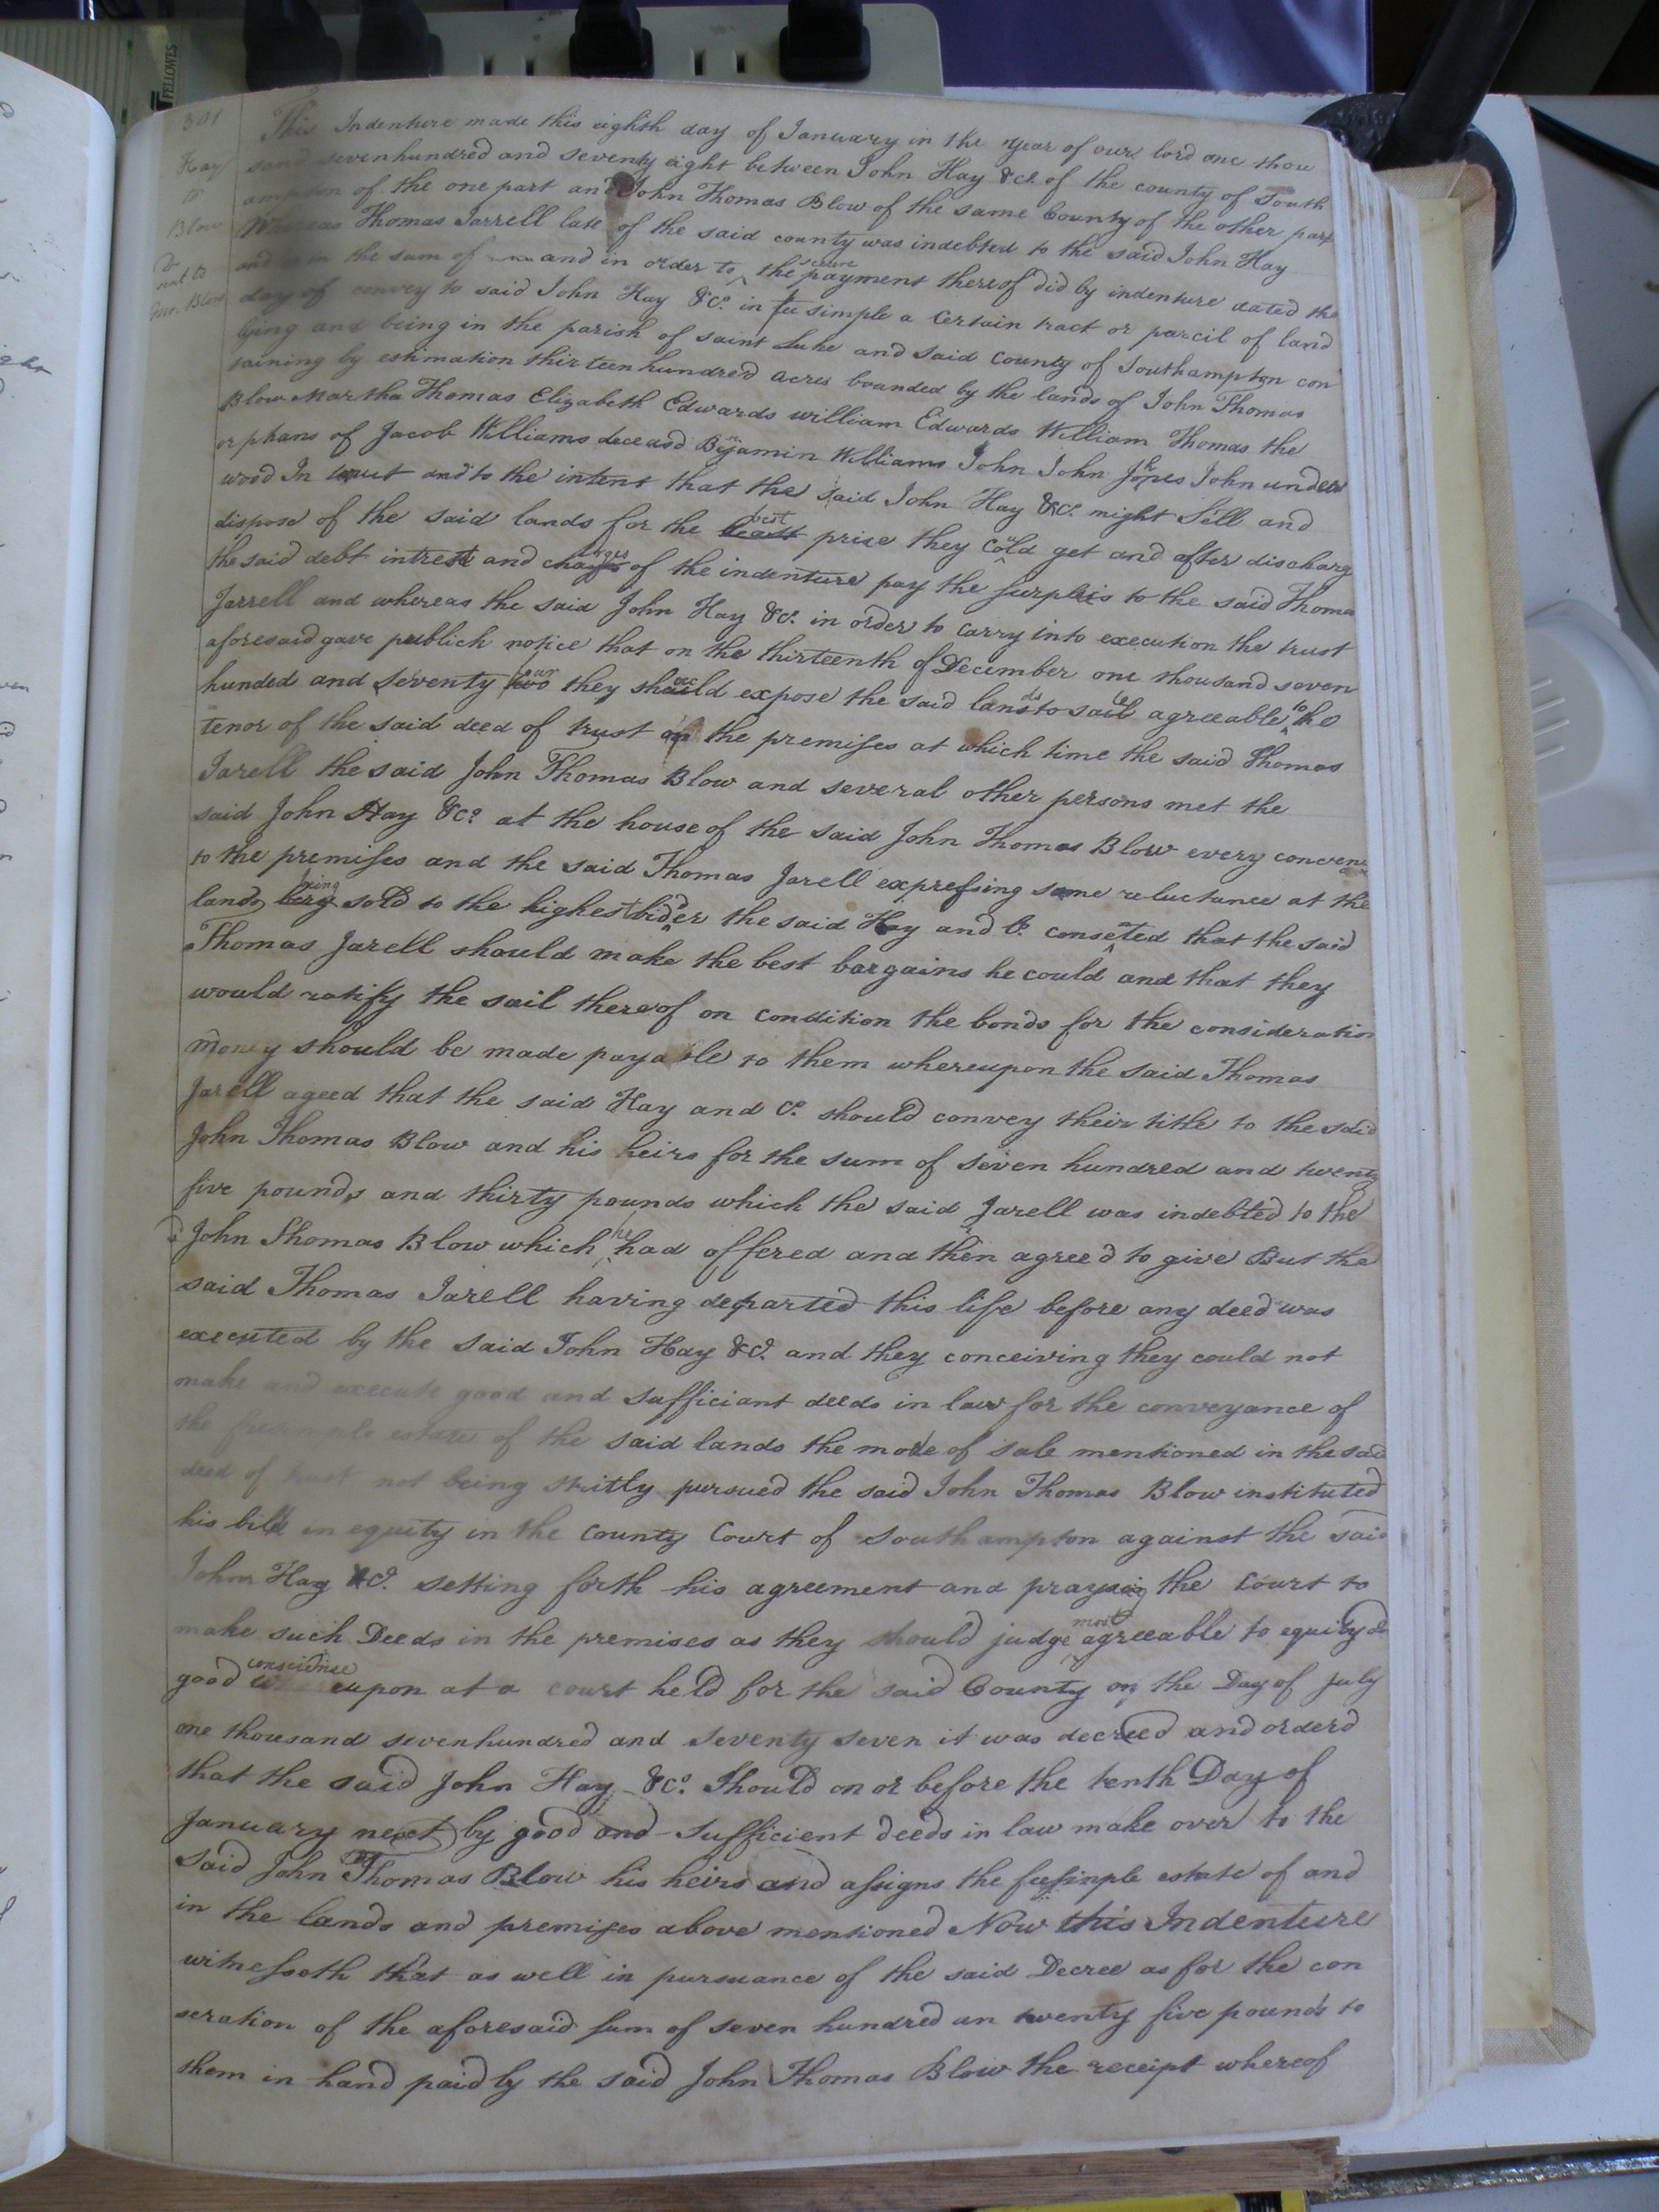 FELLOWES
301
Hay
to
Blow
This Indenture made this eighth day of January in the year of our lord one thou
sand sevenhundred and seventy eight between John Hay &Co. of the county of South
ampton of the one part and John Thomas Blow of the same County of the other part
Whereas Thomas Jarrell late of the said county was indebted to the said John Hay
and in the sum of and in order to secure the payment thereof did by indenture dated the
day of convey to said John Hay &Co. in fee simple a Certain tract or parcil of land
lying and being in the parish of saint Luke and said County of Southampton con
taining by estimation thirteen hundred acres bounded by the lands of John Thomas
Blow Martha Thomas Elizabeth Edwards william Edwards William Thomas the
orphans of Jacob Williams deceasd Benjamin Williams John John Jones John under
wood In trust and to the intent that the said John Hay &Co. might Sell and
dispose of the said lands for the best price they could get and after discharg
the said debt intrest and charges of the indenture pay the surplus to the said Thomas
Jarrell and whereas the said John Hay &Co. in order to Carry into execution the trust
aforesaid gave publick notice that on the thirteenth of December one thousand seven
hunded and Seventy four they should expose the said lands to sale agreeable to the
tenor of the said deed of trust on the premises at which time the said Thomas
Jarell the said John Thomas Blow and several other persons met the
said John Hay &Co. at the house of the said John Thomas Blow every conveni
to the premises and the said Thomas Jarell expressing some reluctance at the
lands being sold to the highest bidder the said Hay and Co. consented that the said
Thomas Jarell should make the best bargains he could and that they
would ratify the sail thereof on condition the bonds for the consideration
money should be made payable to them whereupon the said Thomas
Jarell ageed that the said Hay and Co. should convey their title to the said
John Thomas Blow and his heirs for the sum of seven hundred and twenty
five pounds and thirty pounds which the said Jarell was indebted to the
sd John Thomas Blow which he had offered and then agreed to give But the
said Thomas Jarell having departed this life before any deed was
executed by the said John Hay &Co. and they conceiving they could not
make and execute good and sufficiant deeds in law for the conveyance of
the feesimple estate of the said lands the mode of sale mentioned in the said
deed of trust not being stritly pursued the said John Thomas Blow instituted
his bill in equity in the County Court of Southampton against the said
John Hay &Co. setting forth his agreement and praying the Court to
make such Deeds in the premises as they should judge most agreeable to equity &
good consciense upon at a court held for the said County on the Day of July
one thousand sevenhundred and seventy seven it was decreed and orderd
that the said John Hay &Co. Should on or before the tenth Day of
January next by good and Sufficient deeds in law make over to the
said John Thomas Blow his heirs and assigns the feesimple estate of and
in the lands and premises above mentioned Now this Indenture
witnesseth that as well in pursuance of the said Decree as for the con
seration of the aforesaid sum of seven hundred an twenty five pounds to
them in hand paid by the said John Thomas Blow the receipt whereof